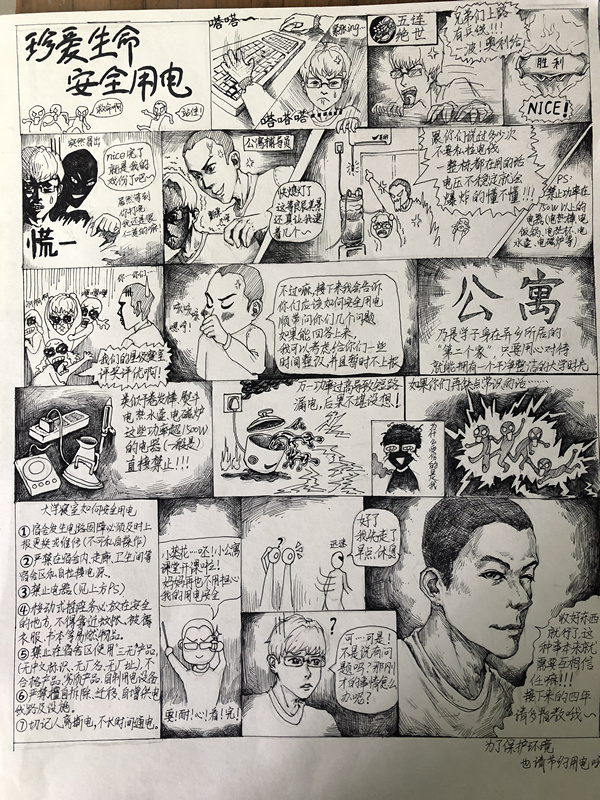 珍爱生命
安全用电
救命啊
站住!
嗒嗒~
嗒嗒嗒
紧张ing…
五连
绝世
兄弟们上路
有兵线!!!
一波!奥利给
胜利
NICE!
突然冒出
nice完了
就是我的
戏份了吧~
慌一
公寓辅导员
快熄灯了
这等良辰美景
还真让我逮
着几个~
跟你们说过多少次
不要私拉电线
一整栋都在用的话
电压不稳定就会
爆炸的懂不懂!!!
PS:
禁止功率在
1500W以上的
电器(电热棒、电
饭锅、电热杯、电
水壶、电磁炉等)
你…你们
我们的星级寝室
评奖评优啊!
不过嘛,接下来我会告诉
你们应该如何安全用电
顺带问你们几个问题
如果能回答上来,
我可以考虑给你们一些
时间整改,并且暂时不上报
公寓
乃是学子身在异乡所居的
“第二个家”,只要用心对待
就能拥有一个干净整洁的大学时光
类似于卷发棒、熨斗
电热水壶、电磁炉
这些功率超1500W
的电器(一般是)
直接禁止!!!
万一功率过高导致短路
漏电,后果不堪设想!
如果你们再缺乏常识的话……
为什么受伤的是我
大学寝室如何安全用电
①宿舍发生电路故障必须及时上
报更换与维修(不可私自操作)
②严禁在宿舍内、走廊、卫生间等
宿舍区私自拉接电源。
③禁止电器(见上方PS)
④移动式插座务必放在安全
的地方,不得靠近蚊帐、被褥
衣服、书本等易燃物品。
⑤禁止在宿舍区使用“三无”产品,
(无中文标识、无厂名、无厂址),不
合格产品、劣质产品、自制用电设备
⑥严禁擅自拆除、迁移、自增供电
线路及设施。
⑦切记人离断电,不长时间通电。
小葵花…呸!小公寓
课堂开课啦!
妈妈再也不用担心
我的用电安全
要!耐!心!看!完!
好了
我先走了
早点休息
迅速
?
可…可是!
不是说有问
题吗?那刚
才的事情怎么
办呢?
收好东西
就行了,这
种事本来就
需要互相信
任嘛!!!
接下来的四年
请多指教哦~
为了保护环境
也请节约用电呀